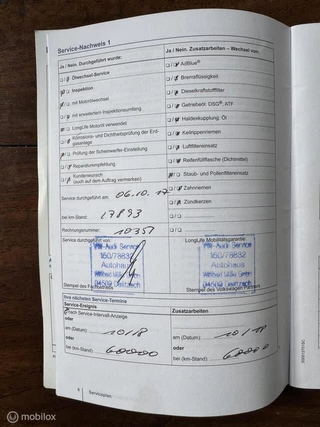 Service-Nachweis 1
Ja / Nein. Durchgeführt wurde:
Ölwechsel-Service
Inspektion
mit Motorölwechsel
mit erweitertem Inspektionsumfang
LongLife Motoröl verwendet
Korrosions- und Dichtheitsprüfung der Erdgasanlage
Prüfung der Scheinwerfer-Einstellung
Reparaturempfehlung
Kundenwunsch
(auch auf dem Auftrag vermerken)
Service durchgeführt am: 06.10.17
bei km-Stand: 17893
Rechnungsnummer: 10357
Service durchgeführt von:
VW-Audi Service
160/78832
Autohaus
04509 Delitzsch
Stempel des Fachbetriebs
Ja / Nein. Zusatzarbeiten – Wechsel von:
AdBlue®
Bremsflüssigkeit
Dieselkraftstofffilter
Getriebeöl: DSG®, ATF
Haldexkupplung: Öl
Keilrippenriemen
Luftfiltereinsatz
Reifenfüllflasche (Dichtmittel)
Staub- und Pollenfiltereinsatz
Zahnriemen
Zündkerzen
LongLife Mobilitätsgarantie:
VW-Audi Service
160/78832
Autohaus
04509 Delitzsch
Stempel des Volkswagen Partners
Ihre nächsten Service-Termine
Service-Ereignis
nach Service-Intervall-Anzeige
oder
am (Datum) 10/18
oder
bei (km-Stand) 60000
Zusatzarbeiten:
am (Datum) 10/18
oder
bei (km-Stand) 60000
8 Serviceplan
mobilox